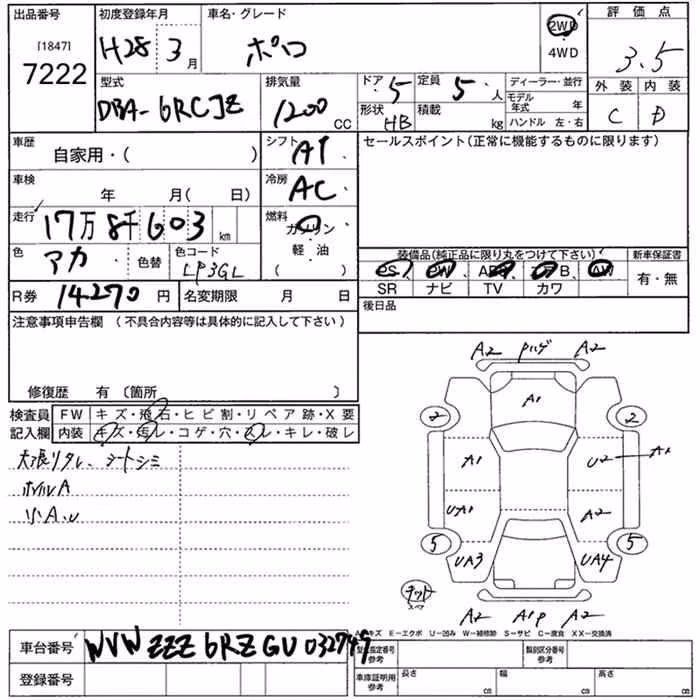 出品番号 初度登録年月 車名・グレード 評価点
[1847] H28 3月 ポロ 2WD 3.5
7222 4WD
型式 排気量 ドア 5 定員 5人 ディーラー・並行 外装 内装
DBA-6RCJZ 1200 CC 形状 HB 積載 kg モデル年式 年 C D
ハンドル 左・右
車歴 自家用・( ) シフト AT セールスポイント(正常に機能するものに限ります)
車検 年 月(日) 冷房 AC
走行 17万8千603km 燃料 ガソリン
色 アカ 色替 色コード LP3GL 軽・油 ( )
装備品(純正品に限り丸をつけて下さい) 新車保証書
PS PW AW 有・無
SR ナビ TV カワ
R券 14270円 名変期限 月 日 後日品
注意事項申告欄 (不具合内容等は具体的に記入して下さい)
修復歴 有 〔箇所 〕
検査員 FW キズ・飛石・ヒビ割・リペア跡・X要
記入欄 内装 キズ・汚レ・コゲ・穴・スレ・キレ・破レ
天張リタレ、シートシミ
ホイルA
小A、U
A2 Pハゲ A2
A1
2 2
A1 U2 A1
UA1 A2
5 5
UA3 UA4
スペア
A2 A1P A2
A-キズ E-エクボ U-凹み W-補修跡 S-サビ C-腐食 XX-交換済
車台番号 WVWZZZ6RZGU032749 型式指定番号 参考 類別区分番号 参考
登録番号 車庫証明用 参考 長さ cm 幅 cm 高さ cm